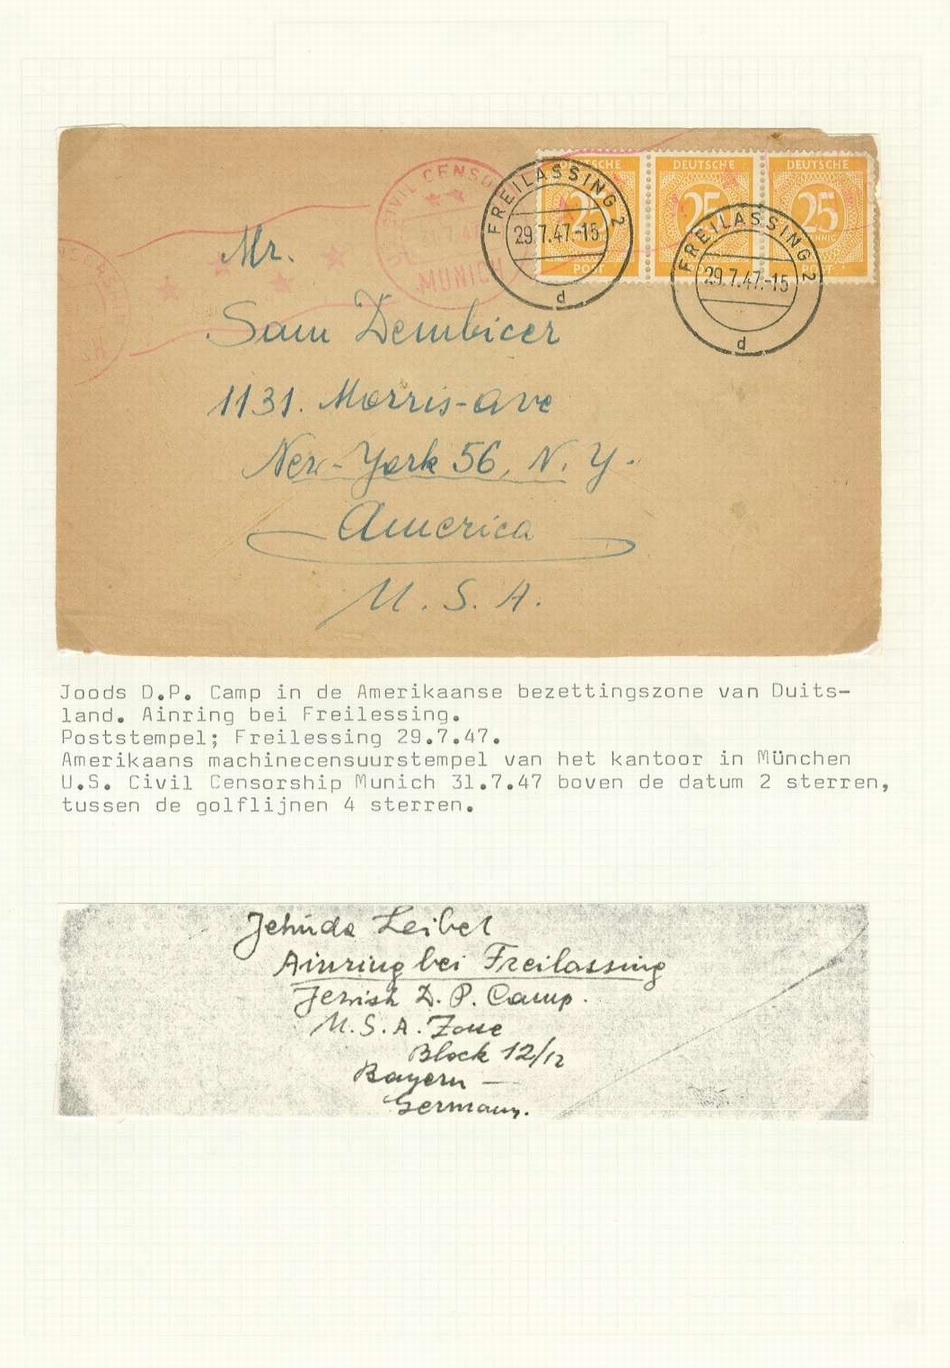 CIVIL CENSO
MUNICH
DEUTSCHE
DEUTSCHE
DEUTSCHE
25
25
25
POST
FREILASSING 2
29.7.47.-15
d
FREILASSING 2
29.7.47.-15
d
Mr.
Sam Dembicer
1131. Morris-ave
New-York 56, N. Y.
America
U. S. A.
Joods D.P. Camp in de Amerikaanse bezettingszone van Duits-
land. Ainring bei Freilessing.
Poststempel; Freilessing 29.7.47.
Amerikaans machinecensuurstempel van het kantoor in München
U.S. Civil Censorship Munich 31.7.47 boven de datum 2 sterren,
tussen de golflijnen 4 sterren.
Jehuda Leibel
Ainring bei Freilassing
Jewish D. P. Camp.
U. S. A. Zone
Block 12/12
Bayern —
Germany.